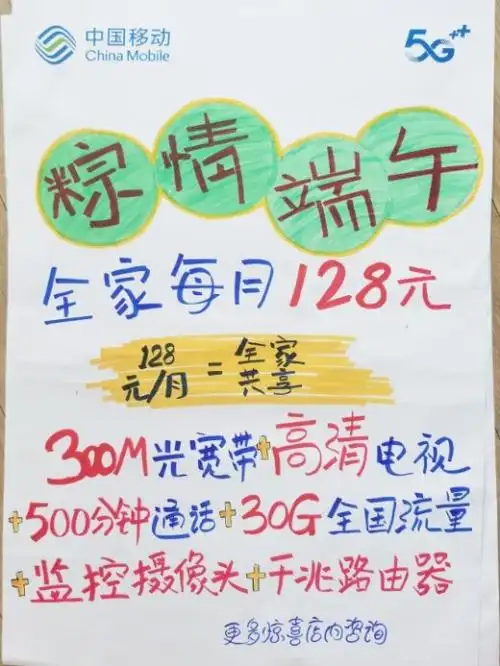 中国移动
China Mobile
5G++
粽情端午
全家每月128元
128元/月=全家共享
300M光宽带+高清电视
+500分钟通话+30G全国流量
+监控摄像头+千兆路由器
更多惊喜店内咨询